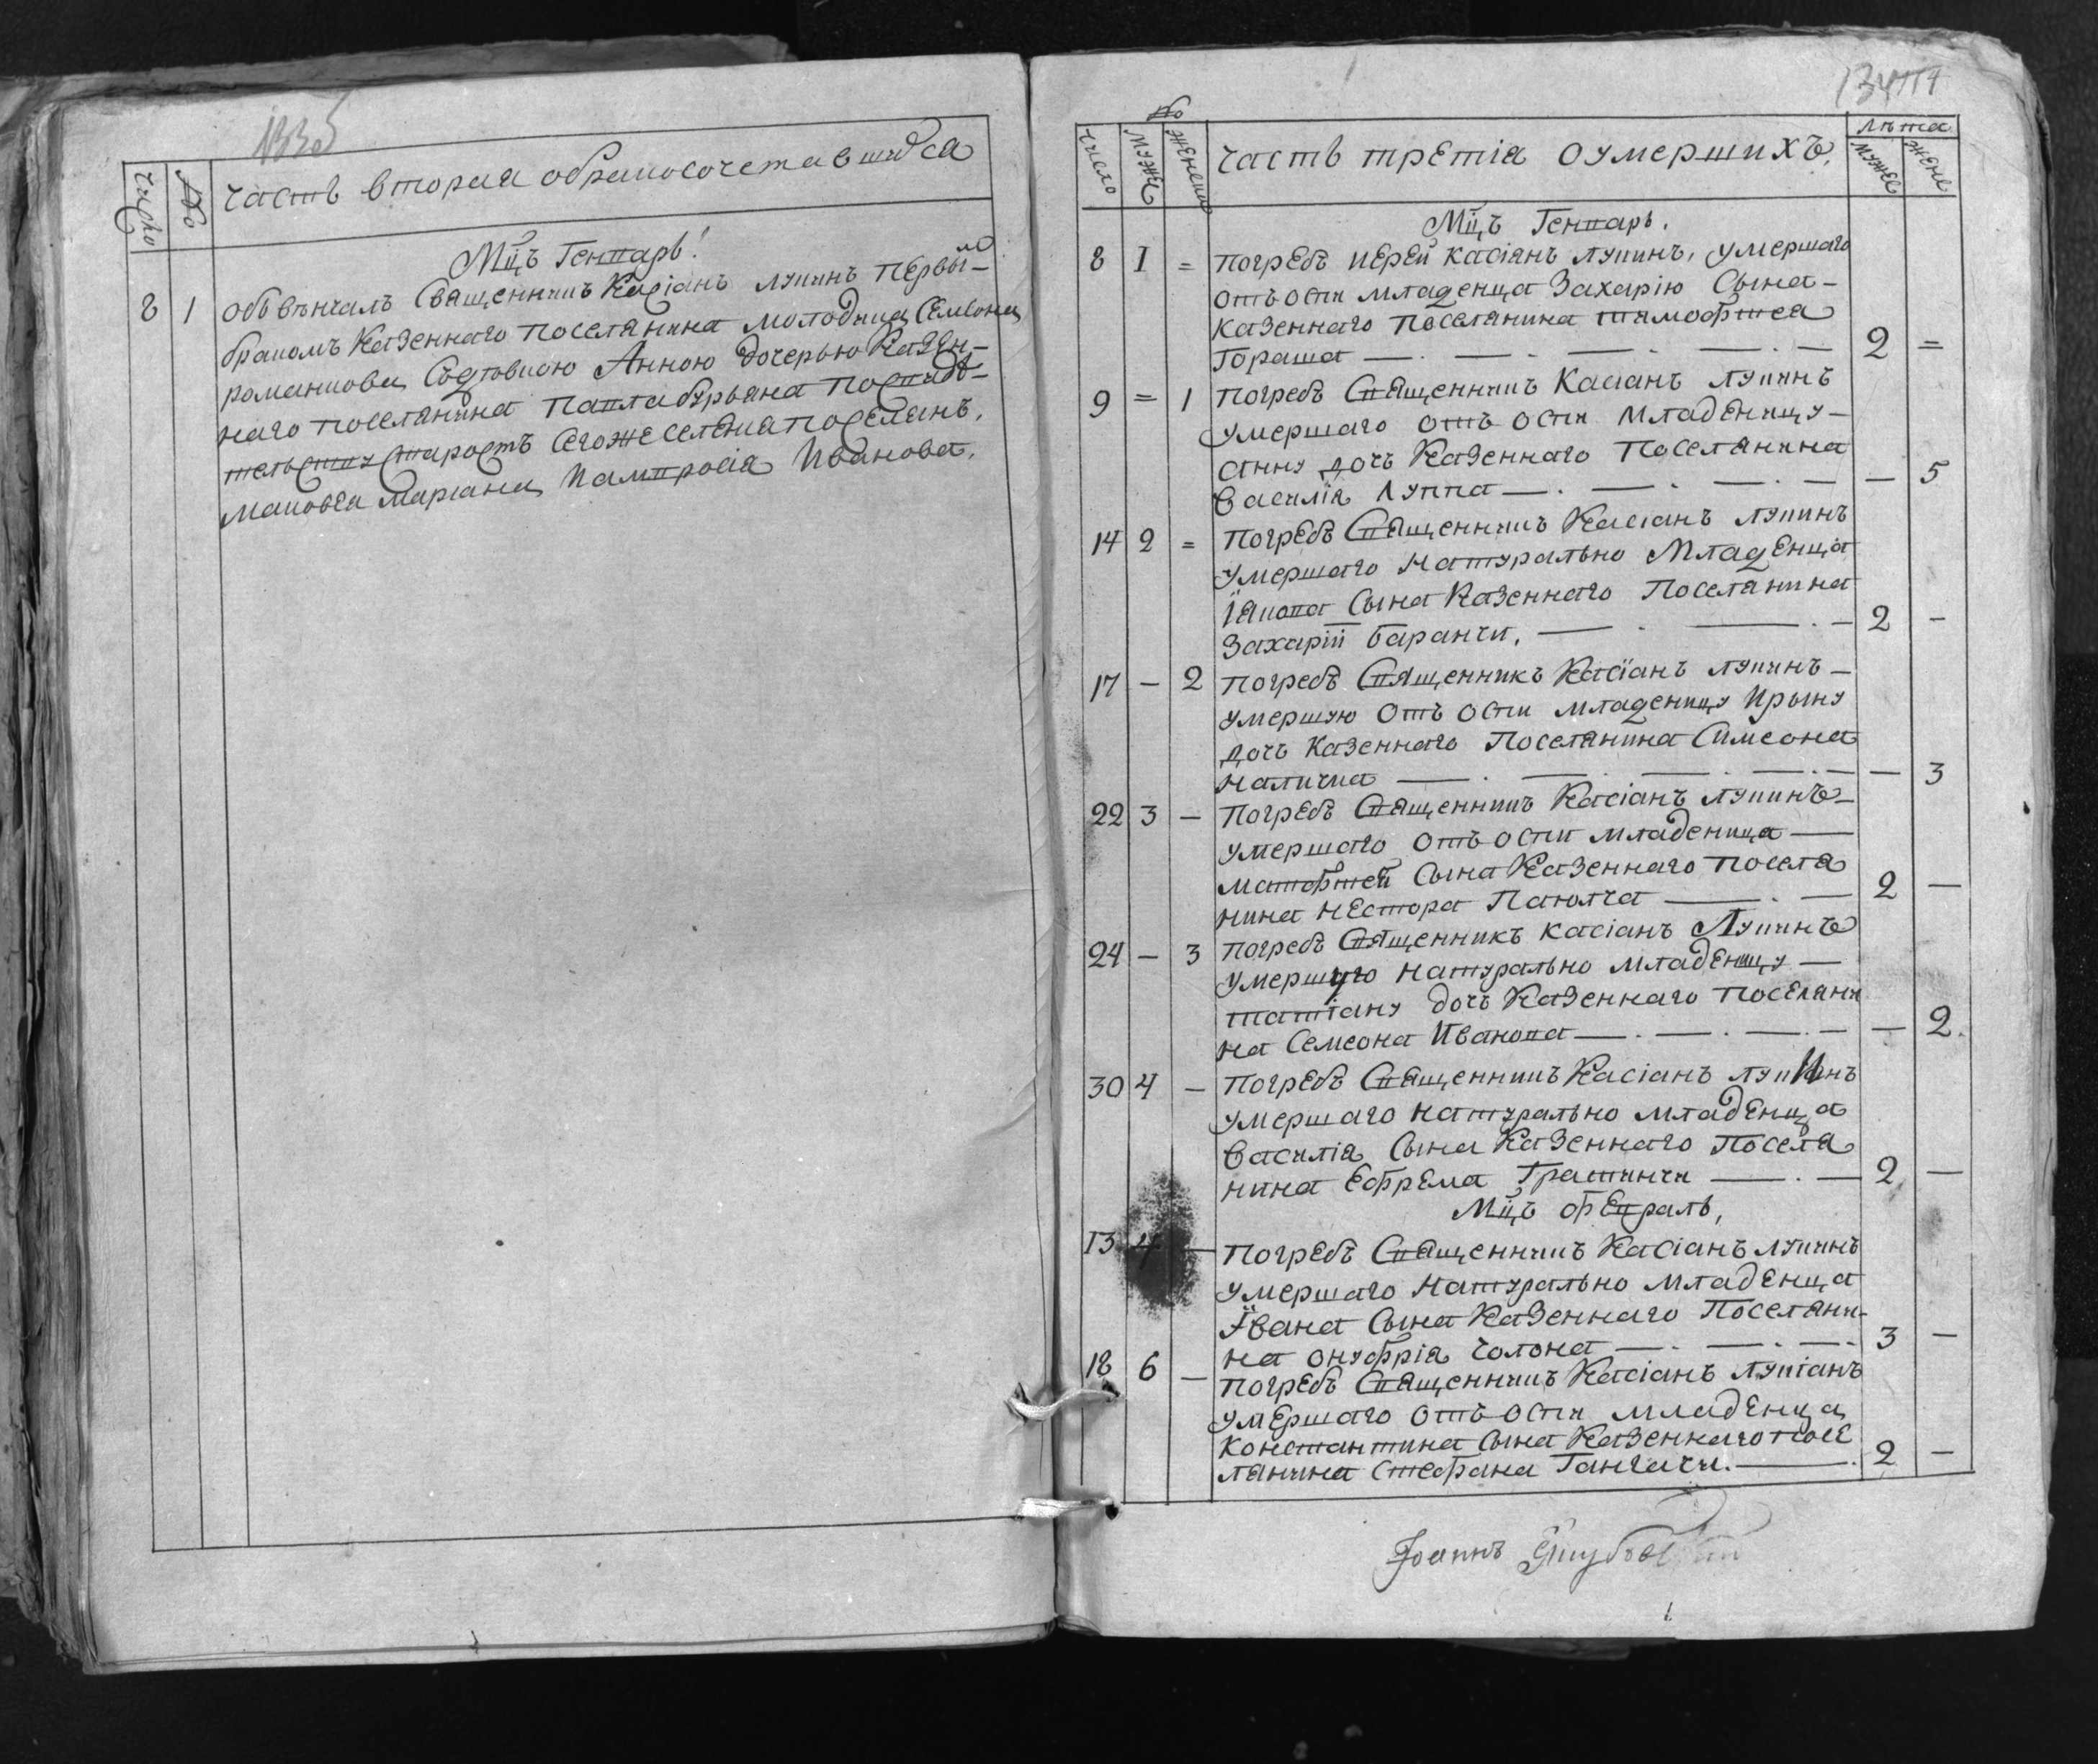 133об
число
№
часть вторая обракосочетавшихся
Мцъ Генварь!
8 1 обвѣнчалъ Священникъ Касіанъ лупинъ первый
бракомъ Казеннаго поселянина молодика Семеона
романцова Содѣвкою Анною дочерью Казен-
наго поселянина павла бурьяна по
старостъ тогоже селения поселянъ,
Иванова.
134
№
число
мужес
женеска
часть третіа оумершихъ.
лѣта
мужес
жене
Мцъ Генварь.
8 1 = погребъ иерей касіанъ лупинъ, умершаго
отъ оспи младенца Захарію Сына -
казеннаго поселянина тимофтеа
Гораша — . — . — . — . — 2 =
9 = 1 погребъ Священникъ Касіанъ лупинъ
умершаго отъ оспи младеницу -
анну дочъ Казеннаго Поселянина
василіа луппа — . — . — . — — 5
14 2 = погребъ Священникъ Касіанъ лупинъ
умершаго натурально младенца
Іакова Сына Казеннаго Поселянина
Захарій баранчи. — . — . — 2 -
17 — 2 погребъ Священникъ Касіанъ лупинъ -
умершую отъ оспи младеницу Ирыну
дочъ казеннаго Поселянина Симеона
каличка — . — . — . — . — — 3
22 3 — погребъ Священникъ Касіанъ лупинъ -
умершаго отъ оспи младеница —
матфтей Сына Казеннаго посела
нина нестора Паюлча — . — 2 —
24 — 3 погребъ Священникъ касіанъ Лупинъ
умершую натурально младеницу —
татіану дочъ Казеннаго поселяни
на Семеона Иванова — . — . — . — — 2.
30 4 — погребъ Священникъ Касіанъ лупинъ
умершаго натурально младенца
василіа Сына Казеннаго посела
нина Ефрема Гратинчи — . — 2 —
Мцъ февраль,
13 4 — погребъ Священникъ Касіанъ лупинъ
умершаго натурально младенца
Івана Сына Казеннаго Поселяни-
на онуфріа чолона — . — . — . 3 —
18 6 — погребъ Священникъ Касіанъ лупіанъ
умершаго отъ оспи младенца
константина сына Казеннаго посе
лянина стефана Гангачи. — . 2 —
Іоаннъ